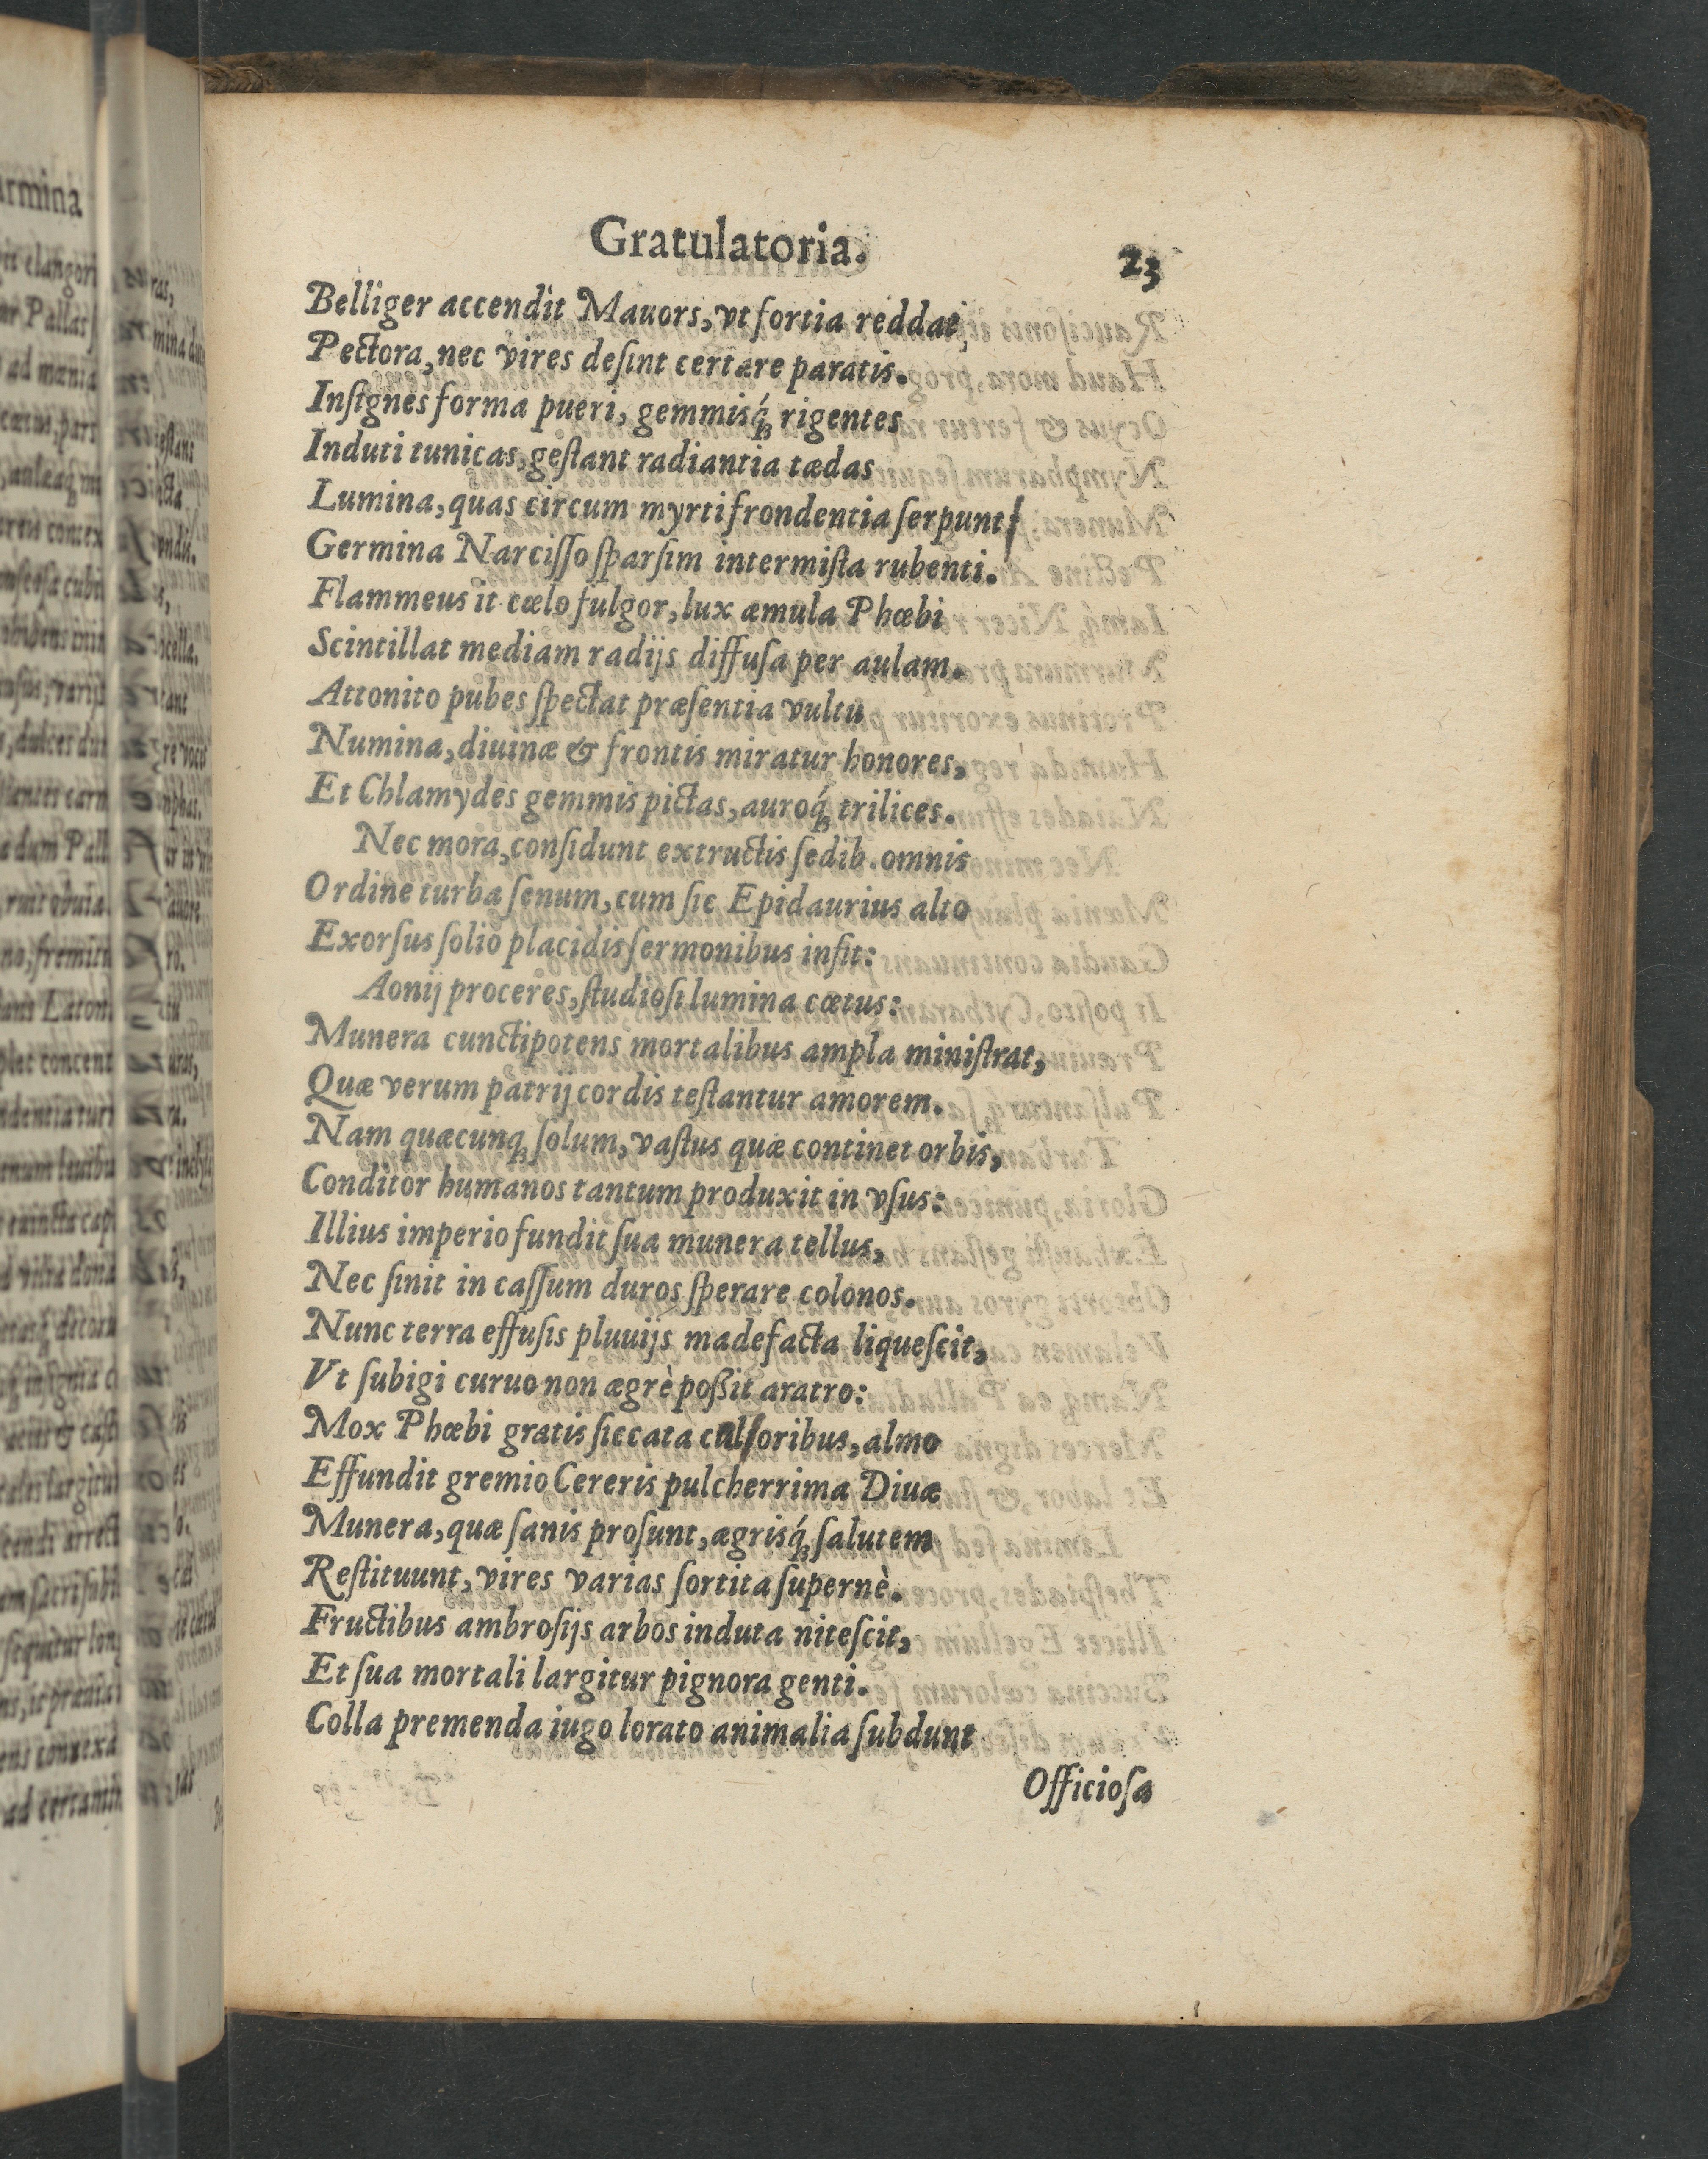 Gratulatoria. 23
Belliger accendit Mauors, vt fortia reddat
Pectora, nec vires desint certare paratis.
Insignes forma pueri, gemmisq́ꝫ rigentes
Induti tunicas, gestant radiantia tædas
Lumina, quas circum myrti frondentia serpunt
Germina Narcisso sparsim intermista rubenti.
Flammeus it cœlo fulgor, lux æmula Phœbi
Scintillat mediam radijs diffusa per aulam.
Attonito pubes spectat præsentia vultu
Numina, diuinæ & frontis miratur honores,
Et Chlamydes gemmis pictas, auroq́ꝫ trilices.
Nec mora, considunt extructis sedib. omnis
Ordine turba senum, cum sic Epidaurius alto
Exorsus solio placidis sermonibus infit:
Aonij proceres, studiosi lumina cœtus:
Munera cunctipotens mortalibus ampla ministrat,
Quæ verum patrij cordis testantur amorem.
Nam quæcunqꝫ solum, vastus quæ continet orbis,
Conditor humanos tantum produxit in vsus:
Illius imperio fundit sua munera tellus,
Nec sinit in cassum duros sperare colonos.
Nunc terra effusis pluuijs madefacta liquescit,
Vt subigi curuo non ægrè poßit aratro:
Mox Phœbi gratis siccata caloribus, almo
Effundit gremio Cereris pulcherrima Diuæ
Munera, quæ sanis prosunt, ægrisq́ꝫ salutem
Restituunt, vires varias sortita supernè.
Fructibus ambrosijs arbos induta nitescit,
Et sua mortali largitur pignora genti.
Colla premenda iugo lorato animalia subdunt
Officiosa